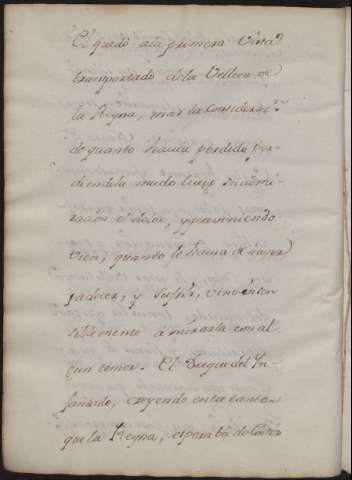 El quedo a la primera vista
transportado de la Velleza de
la Reyna, mas la considerac.n
de quanto havia perdido, per-
diendola mudo luego su admi-
ración é deseo, y previniendo
vien, quanto le havia de hacer
padecer, y sufrir, vino insen-
siblemente á mirarla con al-
gun temor. El Duque del In-
fantado, creyendo entre tanto
que la Reyna, esperaba de Contro